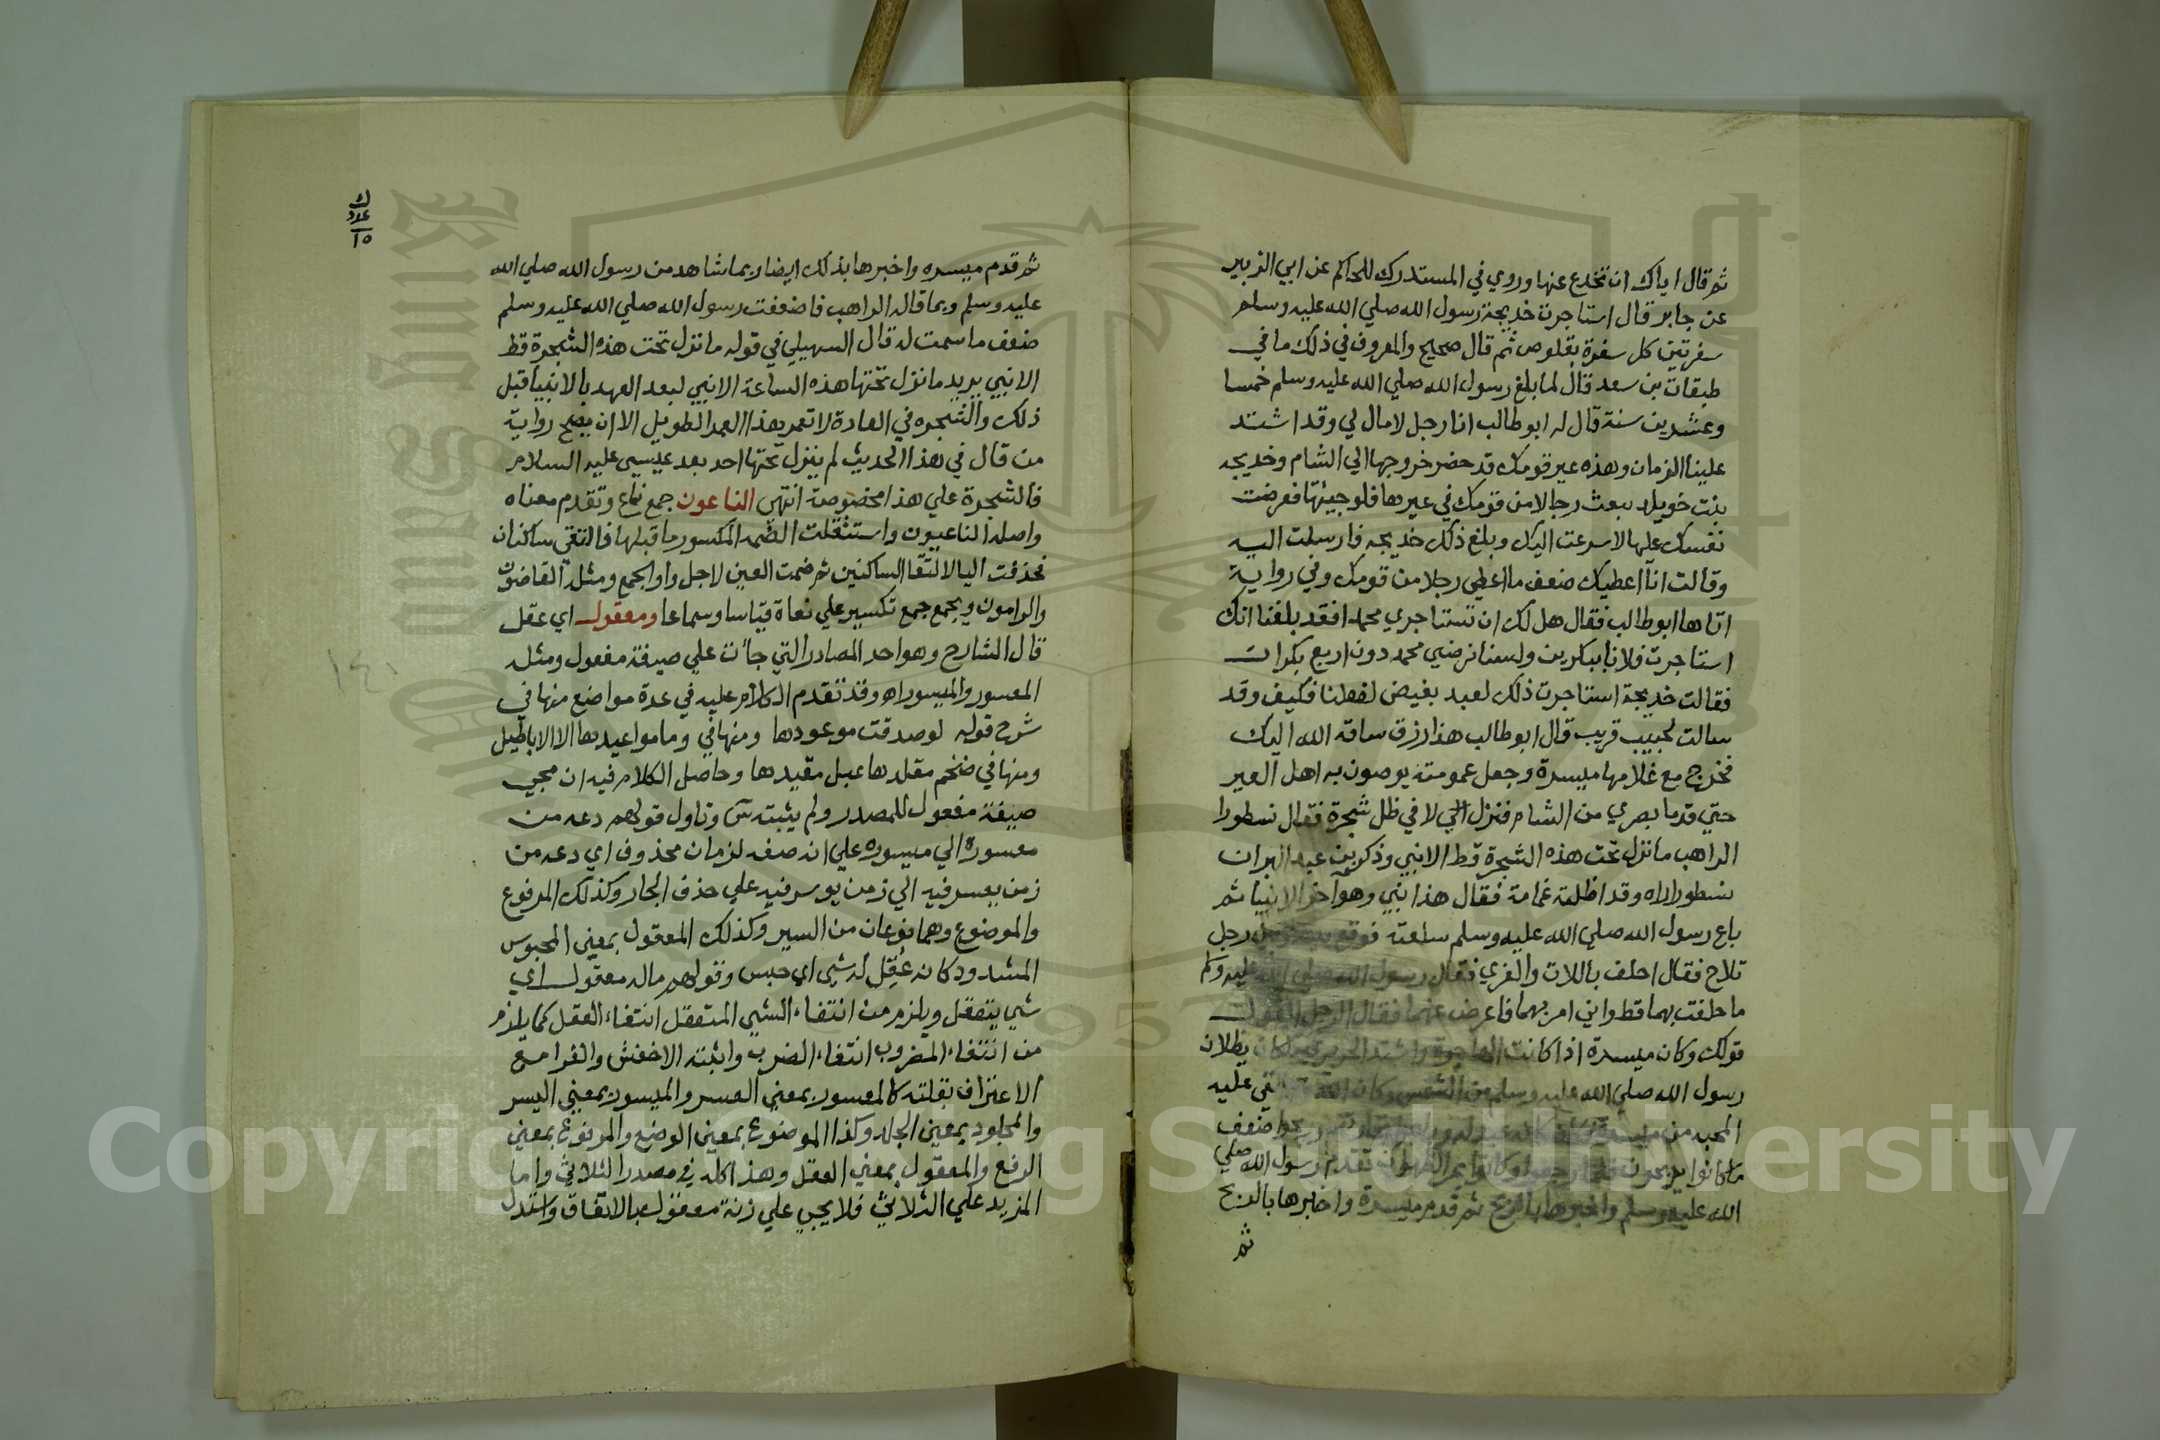 ثم قال اياك ان تخدع عنها وروي في المستدرك للحاكم عن ابي الزبير
عن جابر قال استاجرت خديجة رسول الله صلي الله عليه وسلم
سفرتين كل سفرة بقلوص ثم قال صحيح والمعروف في ذلك ما في
طبقات بن سعد قال لما بلغ رسول الله صلي الله عليه وسلم خمسا
وعشرين سنة قال له ابو طالب انا رجل لا مال لي وقد اشتد
علينا الزمان وهذه عير قومك قد حضر خروجها الي الشام وخديجه
بنت خويلد تبعث رجالا من قومك في عيرها فلو جيتها فعرضت
نفسك عليها لاسرعت اليك وبلغ ذلك خديجه فارسلت اليه
وقالت انا اعطيك ضعف ما اعطي رجلا من قومك وفي رواية
اتاها ابو طالب فقال هل لك ان تستاجري محمدا فقد بلغنا انك
استاجرت فلانا ببكرين ولسنا نرضي محمد دون اربع بكرات
فقالت خديجة استاجرت ذلك لعبد بغيض لفعلنا فكيف وقد
سالت لحبيب قريب قال ابو طالب هذا رزق ساقه الله اليك
فخرج مع غلامها ميسرة وجعل عمومته يوصون به اهل العير
حتي قدما بصري من الشام فنزل الي لا في ظل شجرة فقال نسطورا
الراهب ما نزل تحت هذه الشجرة قط الا نبي وذكر بن عبد البر ان
نسطورا راه وقد اظلته غمامة فقال هذا نبي وهو اخر الانبيا ثم
باع رسول الله صلي الله عليه وسلم سلعته فوقع رجل
تلاح فقال احلف باللات والعزي فقال رسول الله صلي الله عليه وسلم
ما حلفت بهما قط واني امر بهما فاعرض عنهما فقال الرجل القول
قولك وكان ميسرة اذا كانت الهاجرة واشتد الحر يري ملكان يظلان
رسول الله صلي الله عليه وسلم من الشمس وكان الله القي عليه
المحبه من ميسرة ضعف
ما كانوا يربحون فلما رجعوا وكانوا بمر الظهران تقدم رسول الله صلي
الله عليه وسلم واخبرها بالربح ثم قدم ميسرة واخبرها بالربح
ثم
ك
عدد
١٥
ثم قدم ميسره واخبرها بذلك ايضا وبما شاهد من رسول الله صلي الله
عليه وسلم وبما قاله الراهب فاضعفت رسول الله صلي الله عليه وسلم
ضعف ما سمت له قال السهيلي في قوله ما نزل تحت هذه الشجرة قط
الا نبي يريد ما نزل تحتها هذه الساعة الا نبي لبعد العهد بالانبيا قبل
ذلك والشجره في العادة لا تعمر هذا العمر الطويل الا ان يصح رواية
من قال في هذا الحديث لم ينزل تحتها احد بعد عيسي عليه السلام
فالشجرة علي هذا مخصوصة انتهي الناعون جمع ناع وتقدم معناه
واصله الناعيون واستثقلت الضمه المكسور ما قبلها فالتقي ساكنان
فحذفت اليا لالتقا الساكنين ثم ضمت العين لاجل واو الجمع ومثله القاضون
والرامون ويجمع جمع تكسير علي نعاة قياسا وسماعا ومعقول اي عقل
قال الشارح وهو احد المصادر التي جات علي صيغة مفعول ومثله
المعسور والميسور اه وقد تقدم الكلام عليه في عدة مواضع منها في
شرح قوله لو صدقت موعودها ومنها في وما مواعيدها الا الاباطيل
ومنها في ضخم مقلدها عبل مقيدها وحاصل الكلام فيه ان مجي
صيغة مفعول للمصدر ولم يثبته س وتاول قولهم دعه من
معسوره الي ميسوره علي انه صفه لزمان محذوف اي دعه من
زمن يعسر فيه الي زمن يوسر فيه علي حذف الجار وكذلك المرفوع
والموضوع وهما نوعان من السير وكذلك المعقول بمعني المحبوس
المشدود كانه عُقِل له شي اي حبس وقولهم ماله معقول اي
شي يتعقل ويلزم من انتفاء الشي المتعقل انتفاء العقل كما يلزم
من انتفاء المضروب انتفاء الضرب واثبته الاخفش والفرا مع
الاعتراف بقلته كالمعسور بمعني العسر والميسور بمعني اليسر
والمجلود بمعني الجلد وكذا الموضوع بمعني الوضع والمرفوع بمعني
الرفع والمعقول بمعني العقل وهذا كله في مصدر الثلاثي واما
المزيد علي الثلاثي فلا يجي علي زنة مفعول بالاتفاق واستدل
١٤٠
King Saud University
1957
Copyright © King Saud University